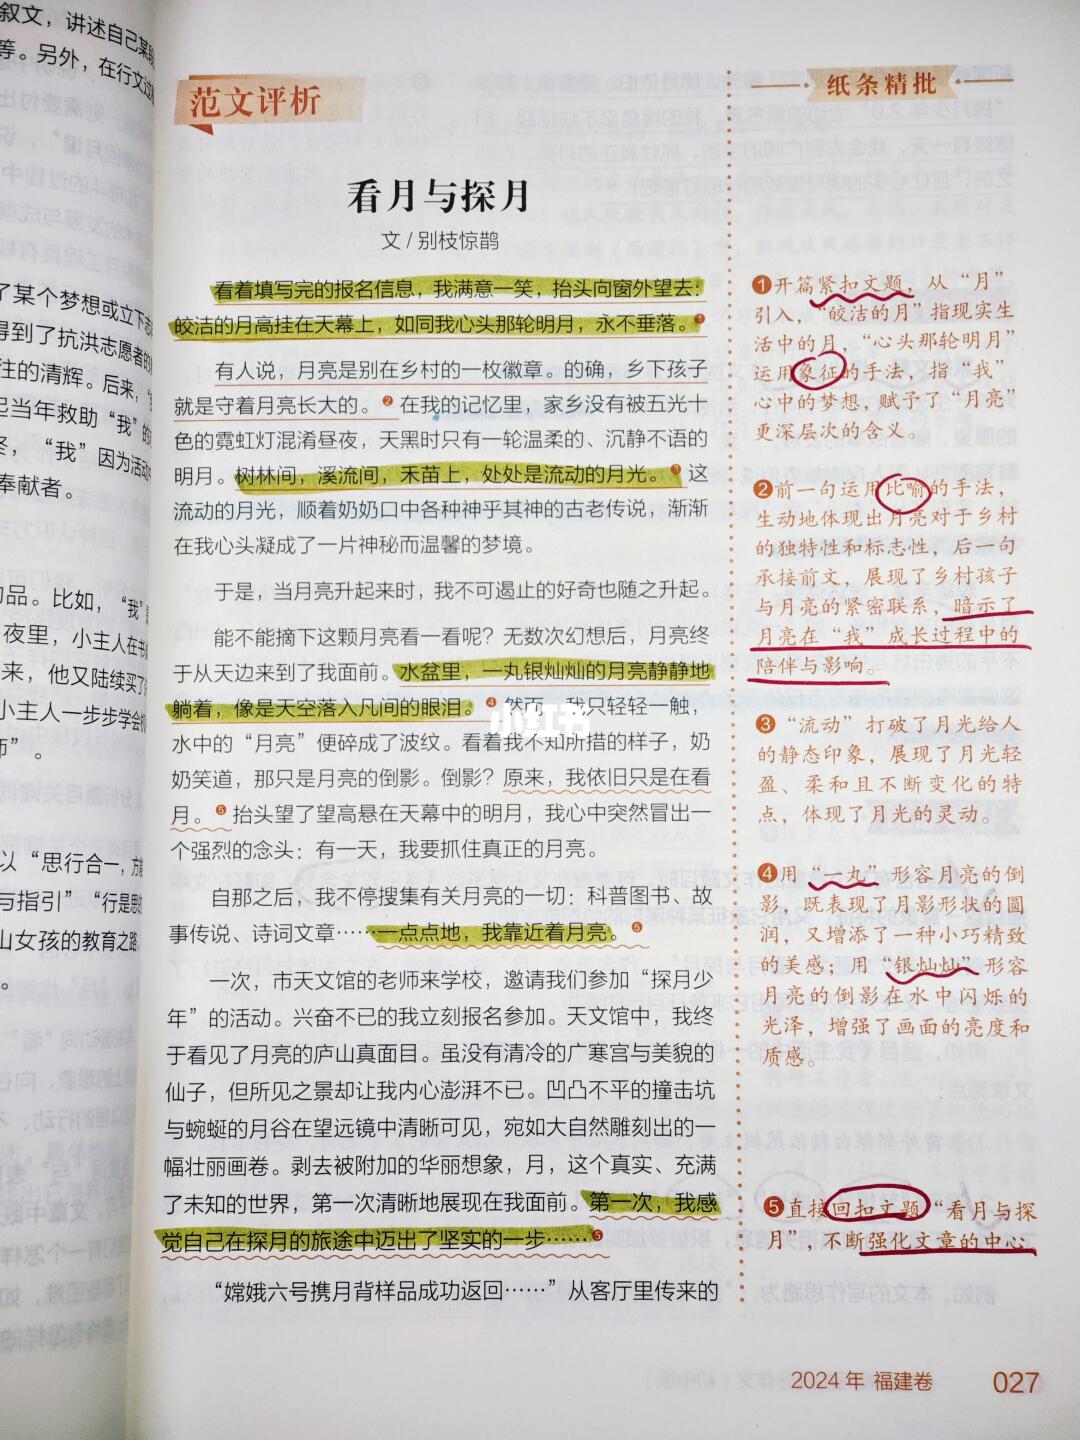 叙文，讲述自己某
等。另外，在行文过
了某个梦想或立下
得到了抗洪志愿者的
往的清辉。后来，
起当年救助“我”的
“我”因为活动
奉献者。
品。比如，“我”
夜里，小主人在
来，他又陆续买了
小主人一步步学会
师”。
以“思行合一，方
与指引”“行是思
山女孩的教育之路
范文评析
看月与探月
文/别枝惊鹊
看着填写完的报名信息，我满意一笑，抬头向窗外望去：
皎洁的月高挂在天幕上，如同我心头那轮明月，永不垂落。❶
有人说，月亮是别在乡村的一枚徽章。的确，乡下孩子
就是守着月亮长大的。❷在我的记忆里，家乡没有被五光十
色的霓虹灯混淆昼夜，天黑时只有一轮温柔的、沉静不语的
明月。树林间，溪流间，禾苗上，处处是流动的月光。❸这
流动的月光，顺着奶奶口中各种神乎其神的古老传说，渐渐
在我心头凝成了一片神秘而温馨的梦境。
于是，当月亮升起来时，我不可遏止的好奇也随之升起。
能不能摘下这颗月亮看一看呢？无数次幻想后，月亮终
于从天边来到了我面前。水盆里，一丸银灿灿的月亮静静地
躺着，像是天空落入凡间的眼泪。❹然而，我只轻轻一触，
水中的“月亮”便碎成了波纹。看着我不知所措的样子，奶
奶笑道，那只是月亮的倒影。倒影？原来，我依旧只是在看
月。❺抬头望了望高悬在天幕中的明月，我心中突然冒出一
个强烈的念头：有一天，我要抓住真正的月亮。
自那之后，我不停搜集有关月亮的一切：科普图书、故
事传说、诗词文章……一点点地，我靠近着月亮。❺
一次，市天文馆的老师来学校，邀请我们参加“探月少
年”的活动。兴奋不已的我立刻报名参加。天文馆中，我终
于看见了月亮的庐山真面目。虽没有清冷的广寒宫与美貌的
仙子，但所见之景却让我内心澎湃不已。凹凸不平的撞击坑
与蜿蜒的月谷在望远镜中清晰可见，宛如大自然雕刻出的一
幅壮丽画卷。剥去被附加的华丽想象，月，这个真实、充满
了未知的世界，第一次清晰地展现在我面前。第一次，我感
觉自己在探月的旅途中迈出了坚实的一步……❺
“嫦娥六号携月背样品成功返回……”从客厅里传来的
小红书
纸条精批
❶开篇紧扣文题，从“月”
引入，“皎洁的月”指现实生
活中的月，“心头那轮明月”
运用象征的手法，指“我”
心中的梦想，赋予了“月亮”
更深层次的含义。
❷前一句运用比喻的手法，
生动地体现出月亮对于乡村
的独特性和标志性，后一句
承接前文，展现了乡村孩子
与月亮的紧密联系，暗示了
月亮在“我”成长过程中的
陪伴与影响。
❸“流动”打破了月光给人
的静态印象，展现了月光轻
盈、柔和且不断变化的特
点，体现了月光的灵动。
❹用“一丸”形容月亮的倒
影，既表现了月影形状的圆
润，又增添了一种小巧精致
的美感；用“银灿灿”形容
月亮的倒影在水中闪烁的
光泽，增强了画面的亮度和
质感。
❺直接回扣文题“看月与探
月”，不断强化文章的中心。
2024年 福建卷 027